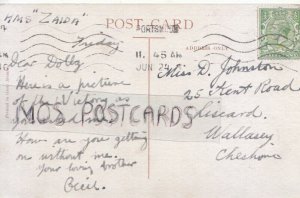 HMS "ZAIDA"
POST CARD
PORTSM
11.45 AM
JUN 24
Friday
Dear Dolly
Here is a picture
of
How are you getting
on without me.
Your loving brother
Cecil.
ADDRESS ONLY
Miss D. Johnston
25 Trent Road
Liscard
Wallasey
Cheshire
MOS POSTCARDS